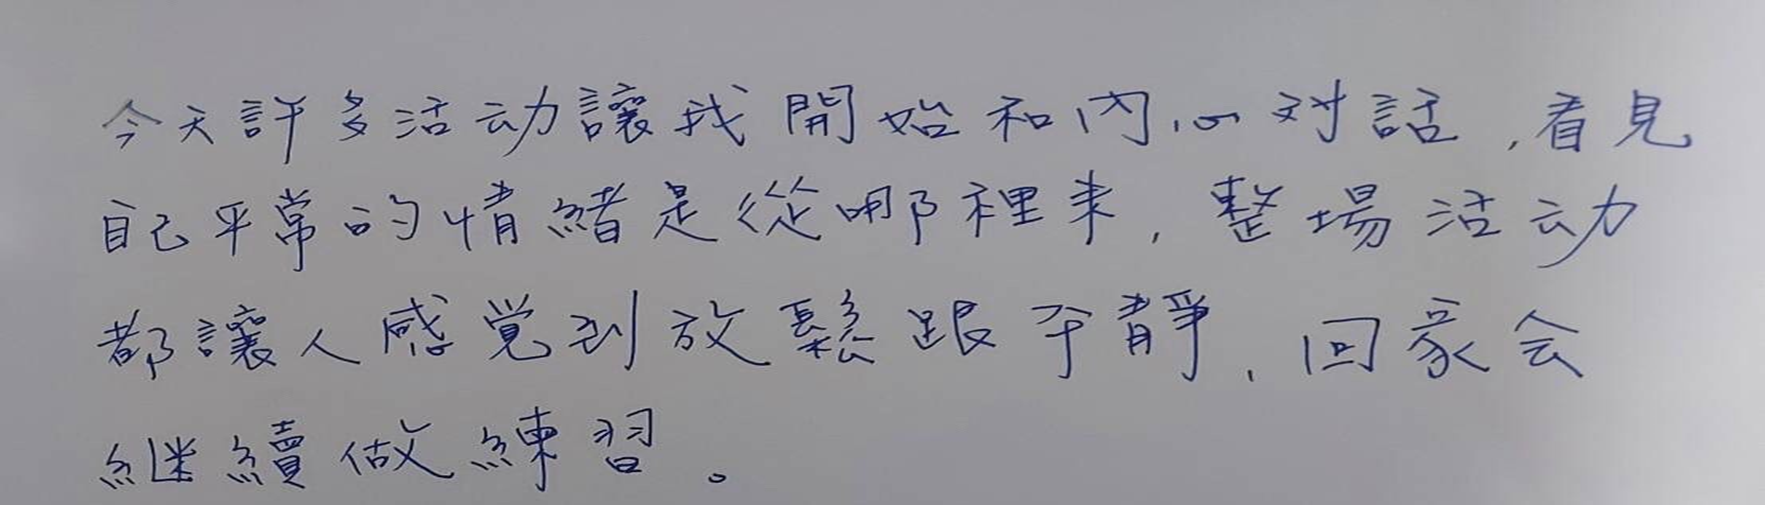 今天許多活动讓我開始和內心对話,看見
自己平常的情緒是從哪裡来,整場活动
都讓人感覚到放鬆跟平靜,回家会
継續做練習。